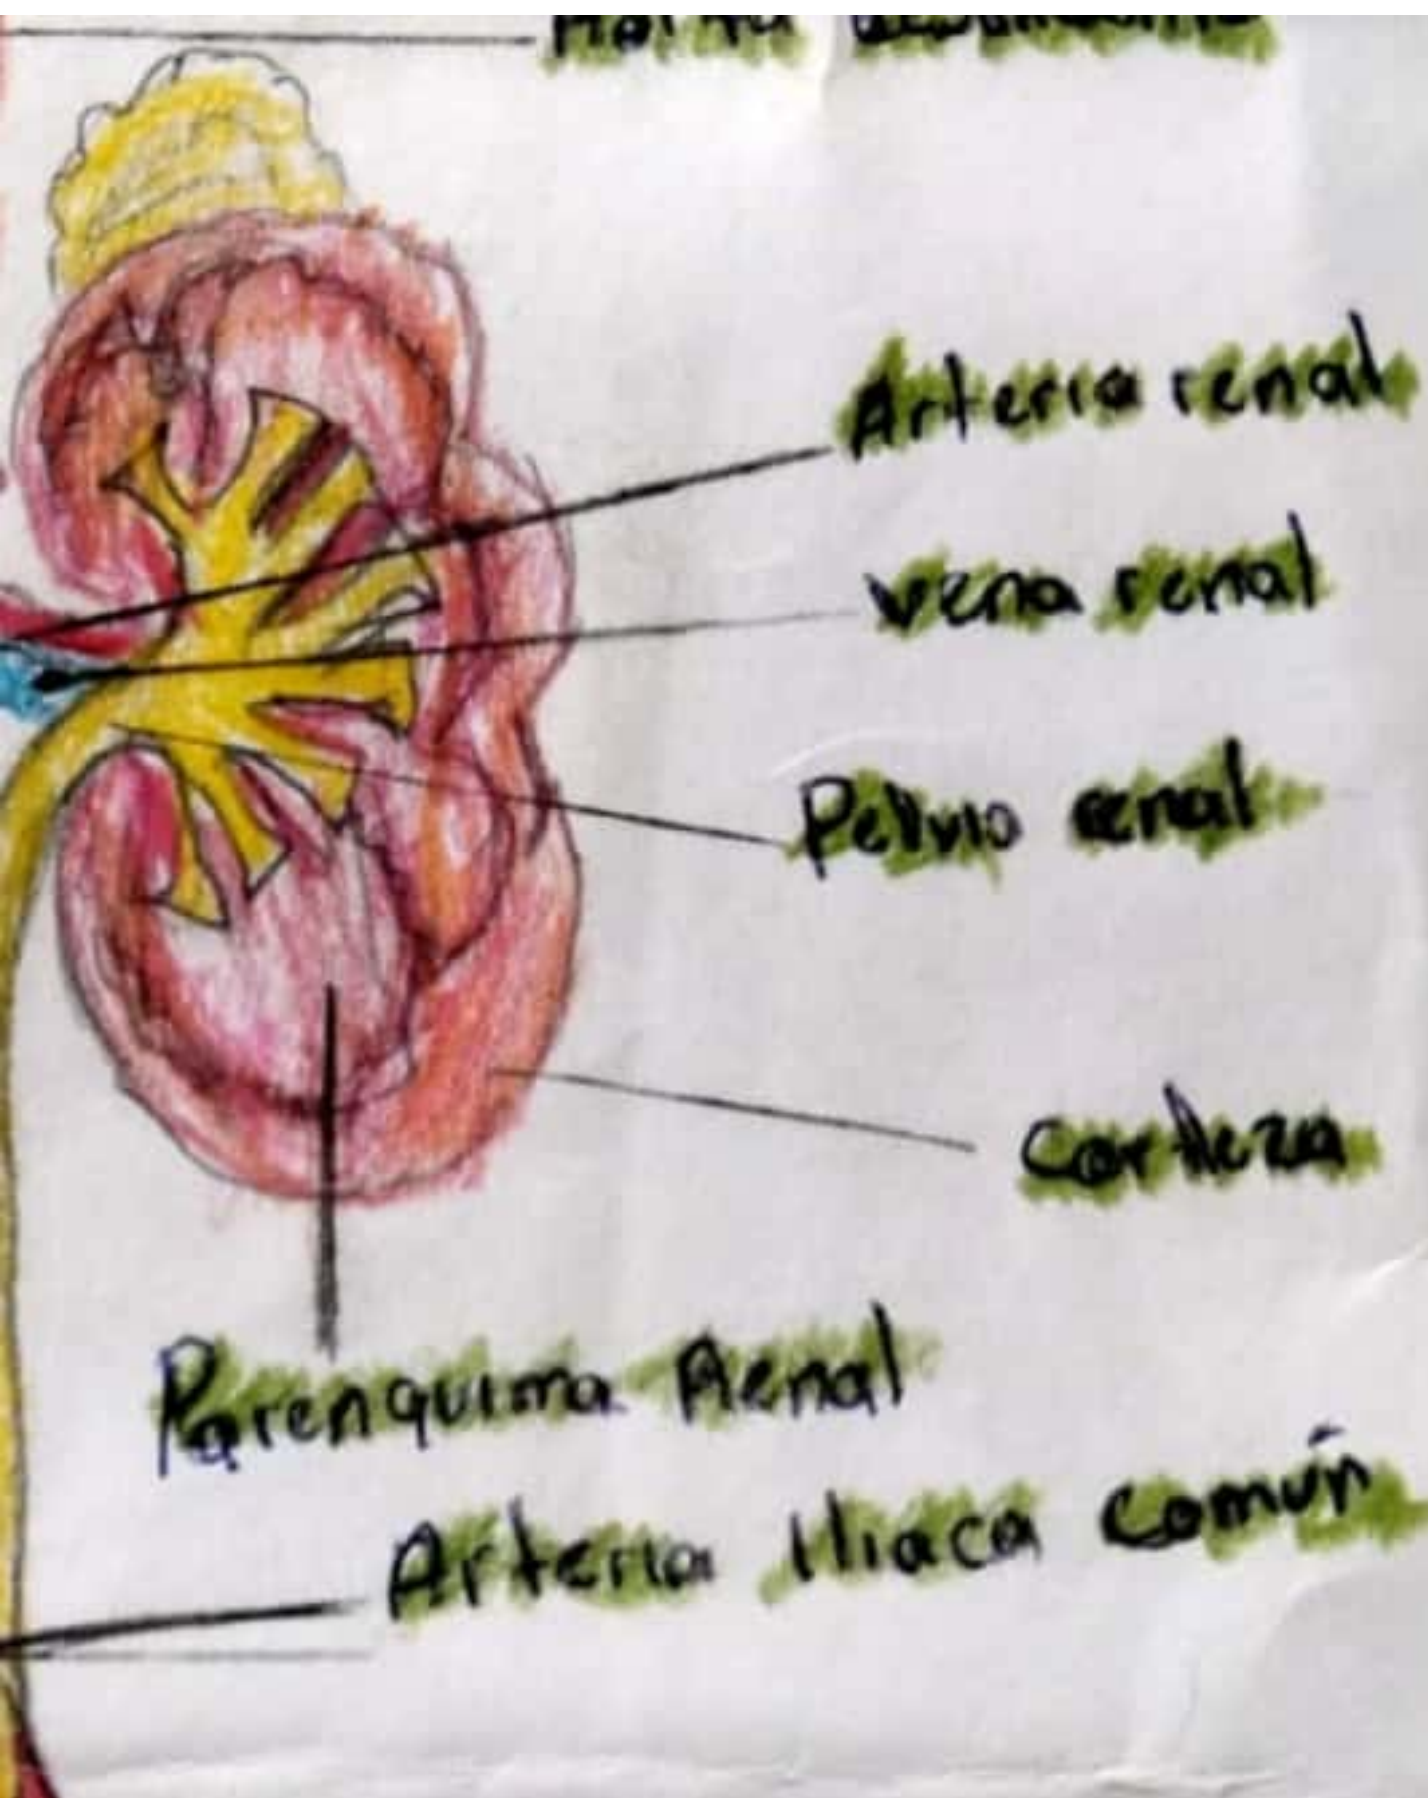 Arteria renal
vena renal
Pelvio renal
Corteza
Parenquima Renal
Arteria Iliaca común